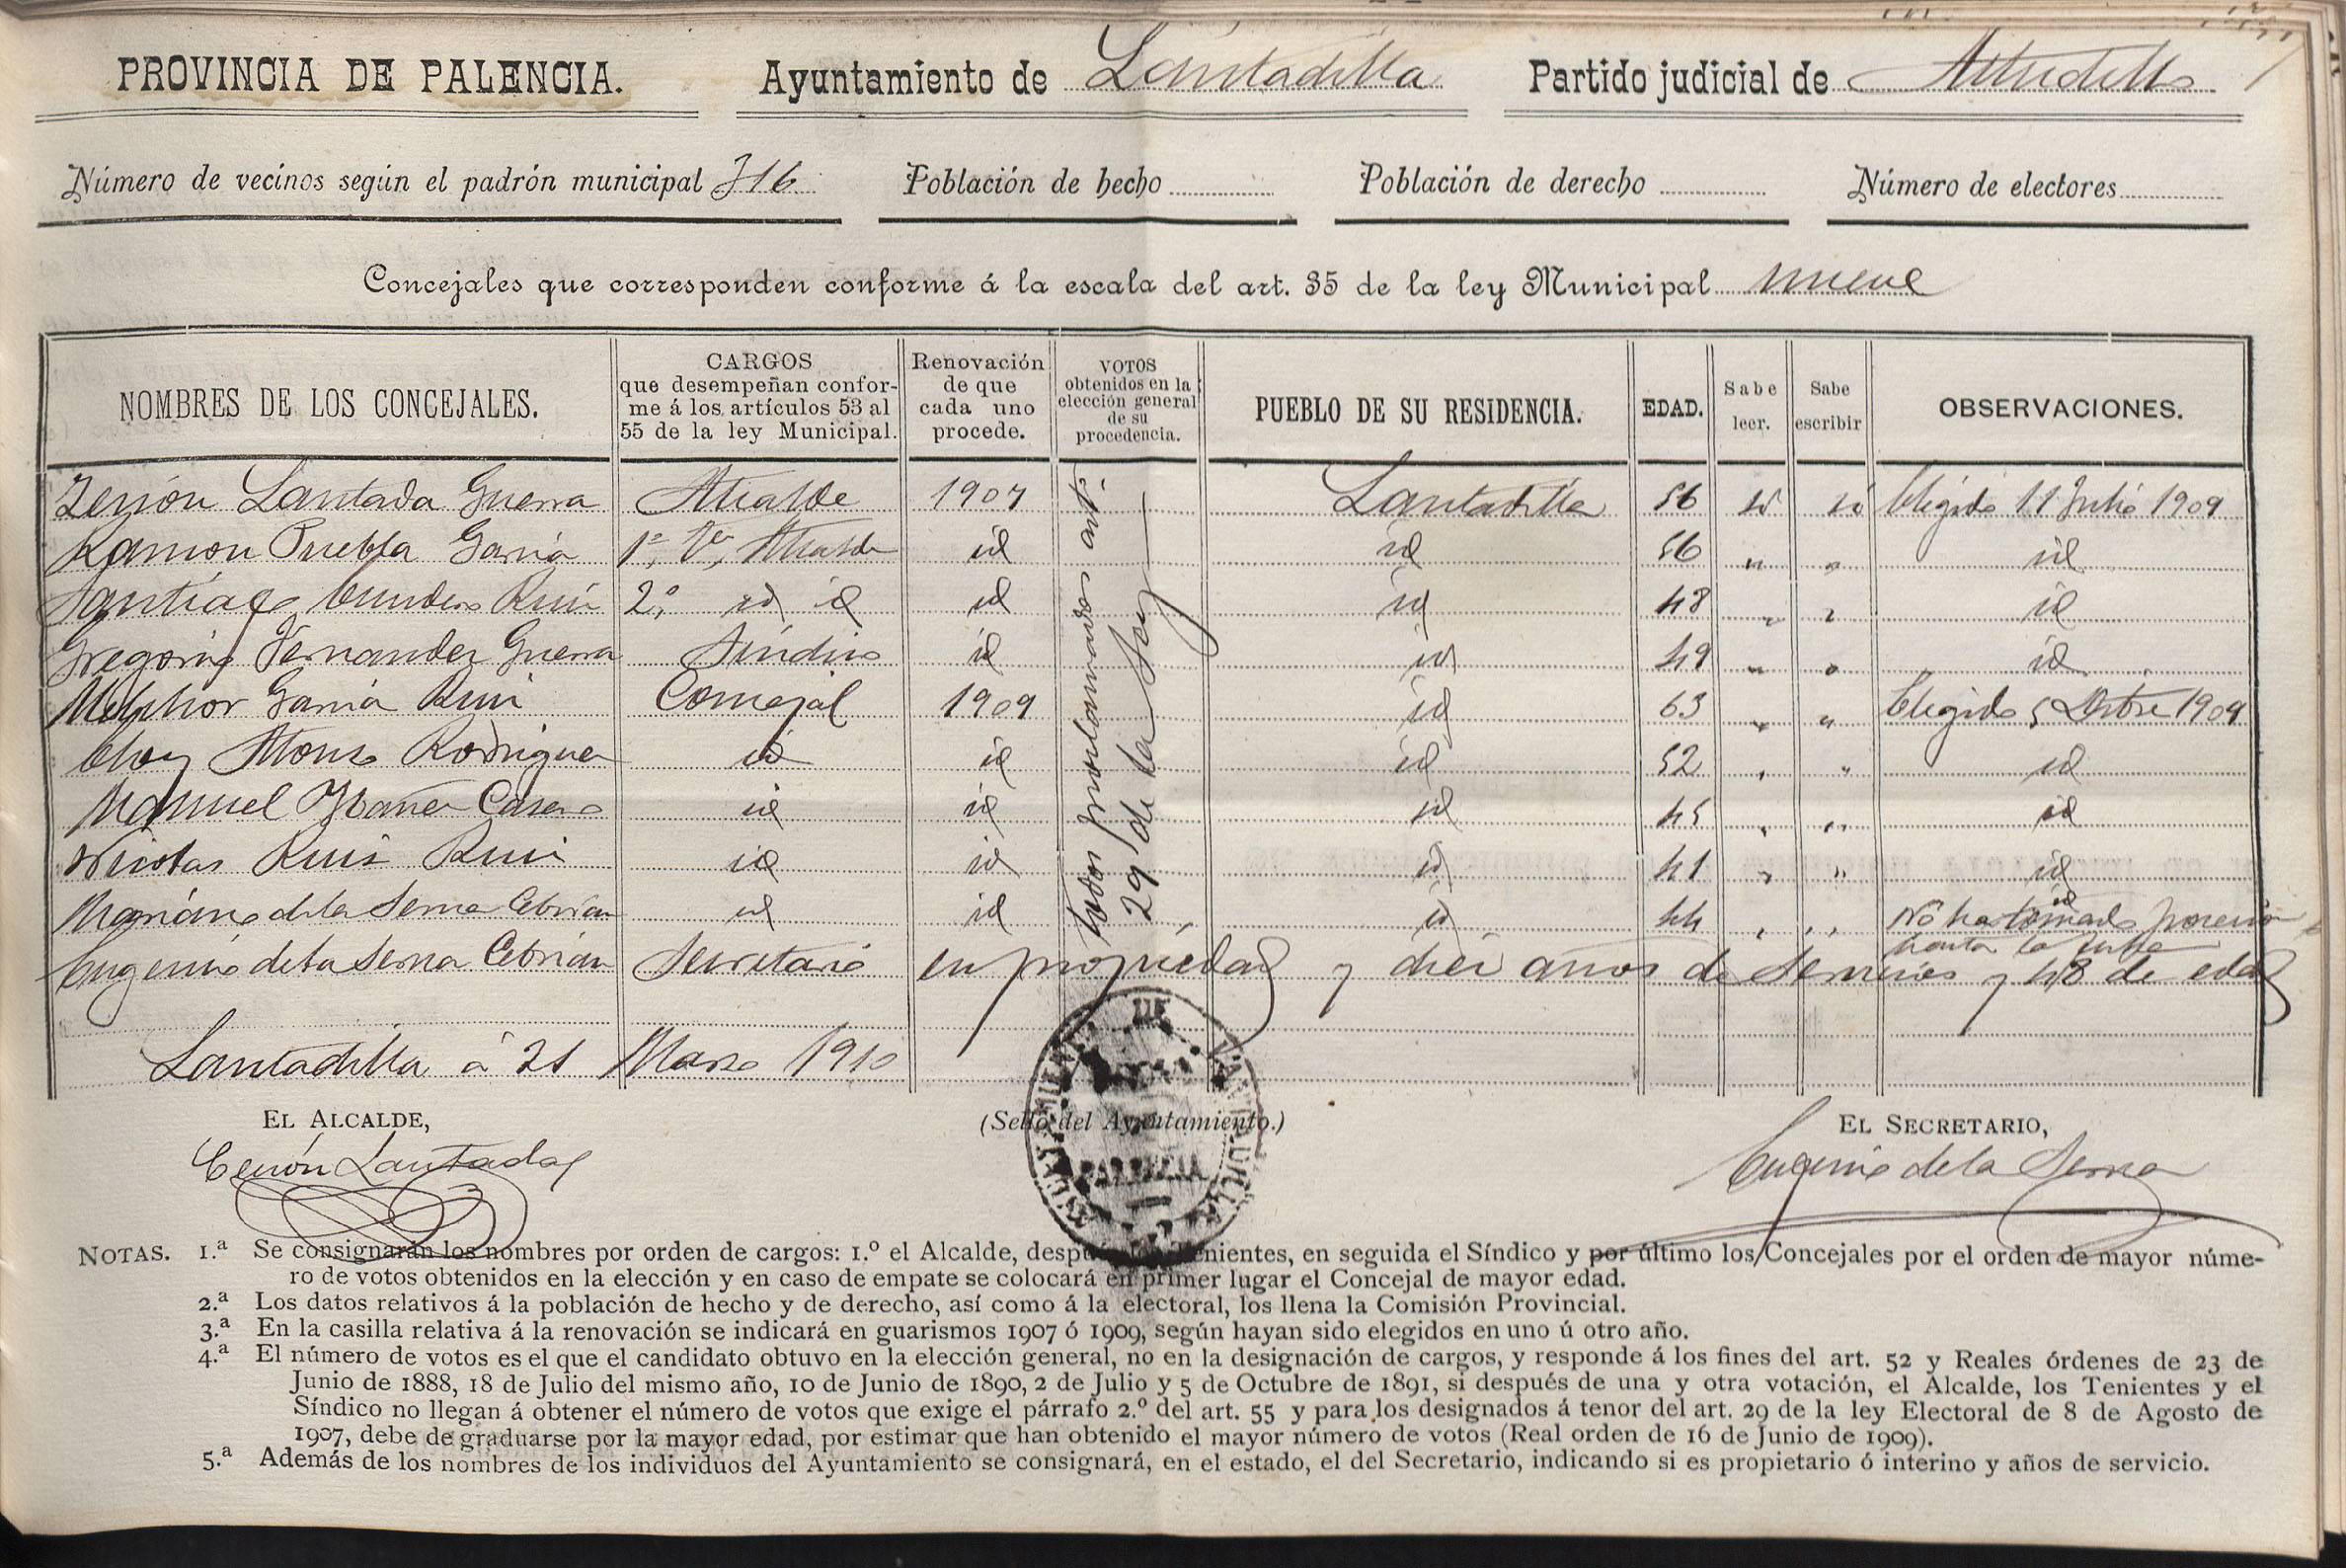 PROVINCIA DE PALENCIA. Ayuntamiento de Lantadilla Partido judicial de Astudillo
Número de vecinos según el padrón municipal 316 Población de hecho Población de derecho Número de electores
Concejales que corresponden conforme á la escala del art. 35 de la ley Municipal nueve
NOMBRES DE LOS CONCEJALES.
CARGOS
que desempeñan confor-
me á los artículos 53 al
55 de la ley Municipal.
Renovación
de que
cada uno
procede.
VOTOS
obtenidos en la
elección general
de su
procedencia.
PUEBLO DE SU RESIDENCIA.
EDAD.
Sabe
leer.
Sabe
escribir
OBSERVACIONES.
Zenón Lantada Guerra Alcalde 1907 Lantadilla 56 si si Elegido 11 Julio 1909
Ramon Puebla Garcia 1º Tte Alcalde id id 56 " " id
Santiago Ruiz 2º id id id id 48 " " id
Gregorio Fernandez Guerra Síndico id id 49 " " id
Melchor Garcia Ruiz Concejal 1909 id 63 " " Elegido 5 Dbre 1909
Eloy Alonso Rodriguez id id id 52 " " id
Manuel Ybañez Casero id id id 45 " " id
Nicolas Ruiz Ruiz id id id 41 " " id
Mariano de la Serna Cebrian id id id 44 " " id
No ha tomado posesion
hasta la fecha
todos proclamados art.
29 de la Ley
Eugenio de la Serna Cebrián Secretario en propiedad y diez años de servicios y 48 de edad
Lantadilla á 21 Marzo 1910
EL ALCALDE, (Sello del Ayuntamiento.) EL SECRETARIO,
Cenón Lantada Eugenio de la Serna
AYUNTAMIENTO DE LANTADILLA
PALENCIA
NOTAS. 1.ª Se consignarán los nombres por orden de cargos: 1.º el Alcalde, después los Tenientes, en seguida el Síndico y por último los Concejales por el orden de mayor núme-
ro de votos obtenidos en la elección y en caso de empate se colocará en primer lugar el Concejal de mayor edad.
2.ª Los datos relativos á la población de hecho y de derecho, así como á la electoral, los llena la Comisión Provincial.
3.ª En la casilla relativa á la renovación se indicará en guarismos 1907 ó 1909, según hayan sido elegidos en uno ú otro año.
4.ª El número de votos es el que el candidato obtuvo en la elección general, no en la designación de cargos, y responde á los fines del art. 52 y Reales órdenes de 23 de
Junio de 1888, 18 de Julio del mismo año, 10 de Junio de 1890, 2 de Julio y 5 de Octubre de 1891, si después de una y otra votación, el Alcalde, los Tenientes y el
Síndico no llegan á obtener el número de votos que exige el párrafo 2.º del art. 55 y para los designados á tenor del art. 29 de la ley Electoral de 8 de Agosto de
1907, debe de graduarse por la mayor edad, por estimar que han obtenido el mayor número de votos (Real orden de 16 de Junio de 1909).
5.ª Además de los nombres de los individuos del Ayuntamiento se consignará, en el estado, el del Secretario, indicando si es propietario ó interino y años de servicio.